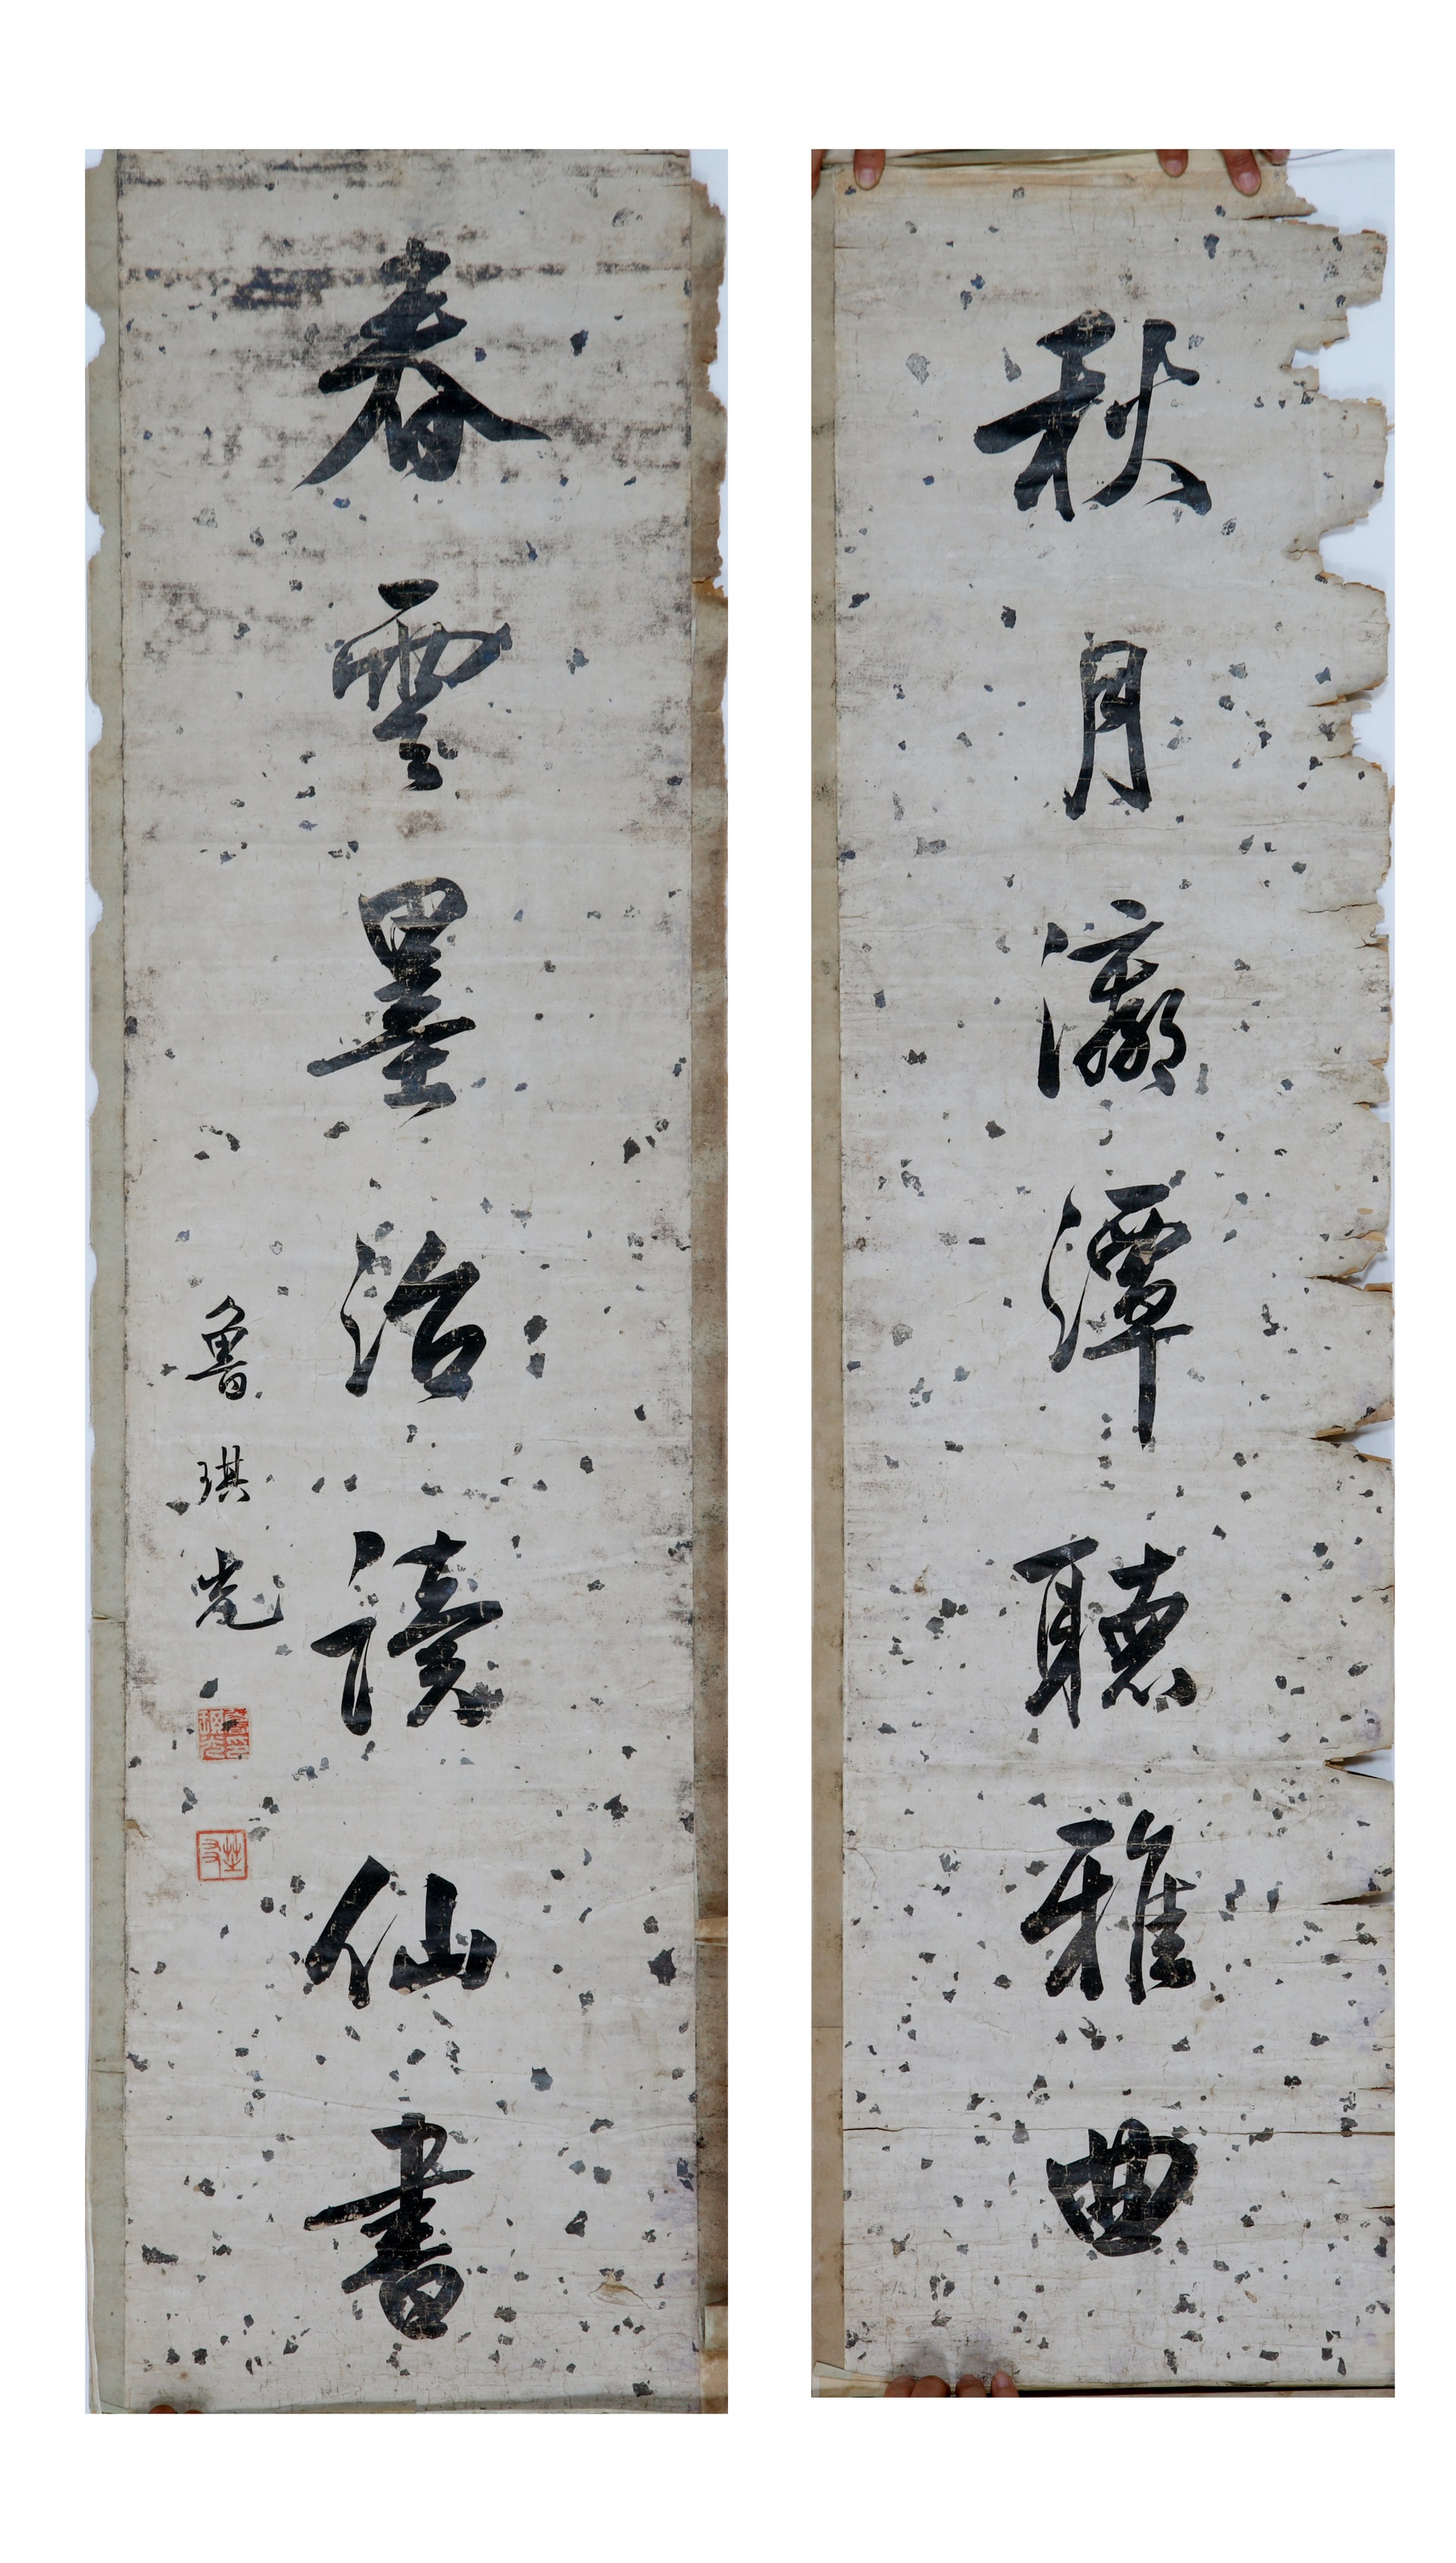 秋月瀛潭聽雅曲
春雲墨治讀仙書
魯琪光